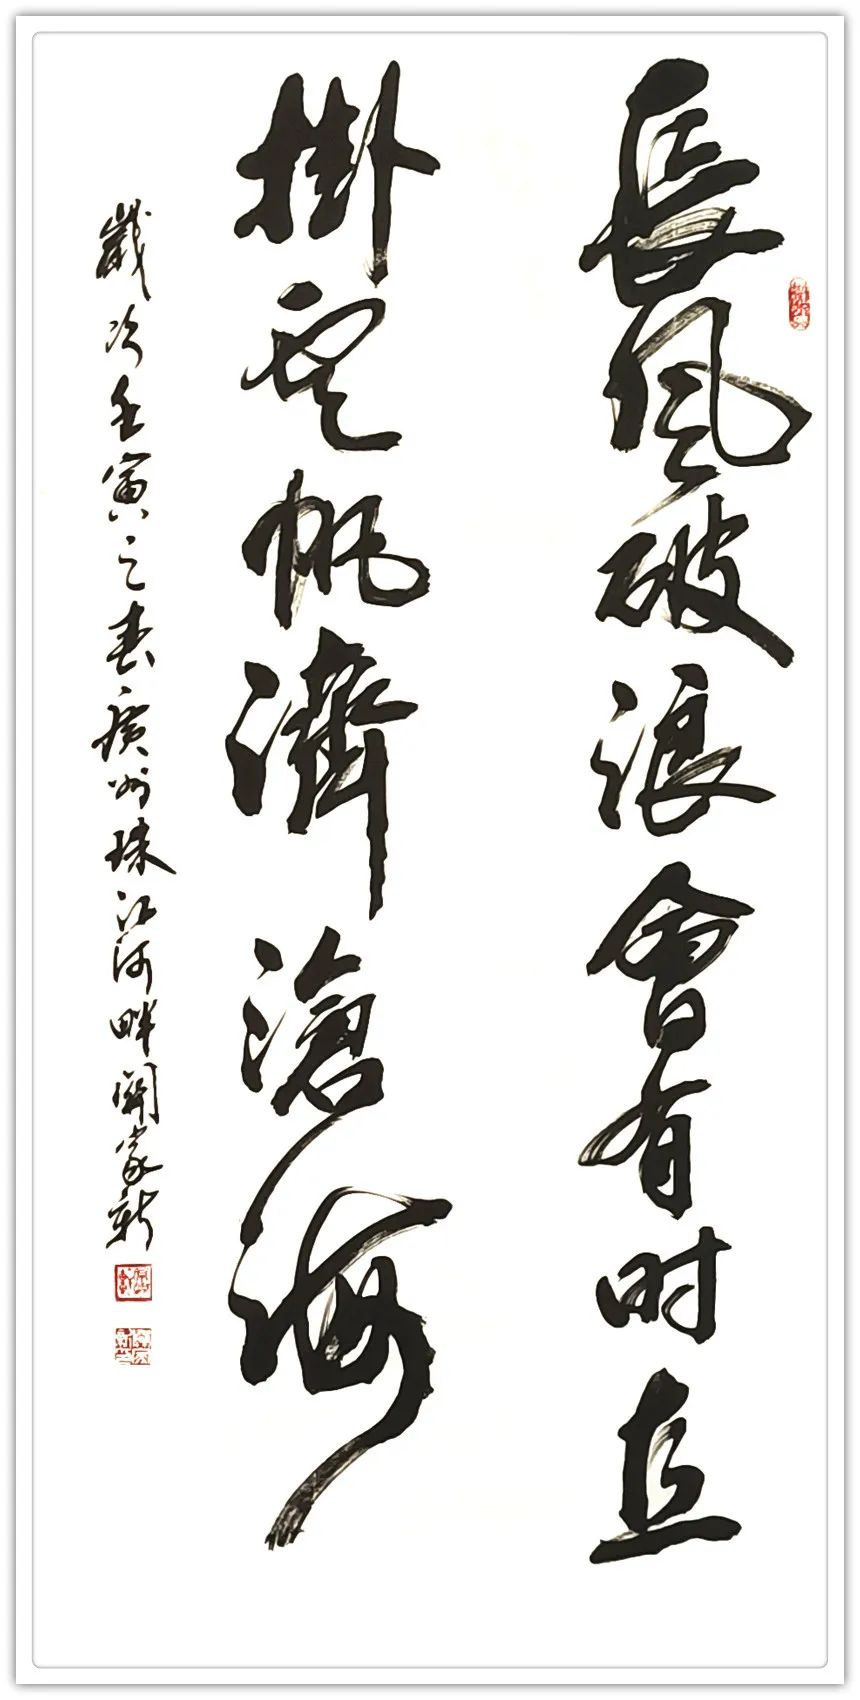 長風破浪會有时直
掛雲帆濟滄海
歲次壬寅之春廣州珠江河畔關家新